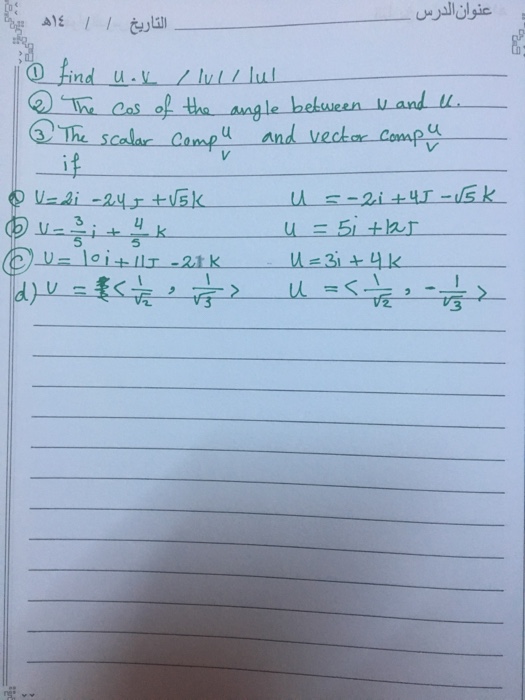 عنوان الدرس
التاريخ / / ١٤هـ
① find u.v / |v| / |u|
② The cos of the angle between v and u.
③ The scalar comp u v and vector comp u v
if
ⓐ V=2i -24J +√5K U = -2i +4J -√5K
ⓑ V= 3/5 i + 4/5 K U = 5i +12J
ⓒ V= 10i +11J -2K U=3i + 4K
d) V = <1/√2 , 1/√3> U = <1/√2 , -1/√3>